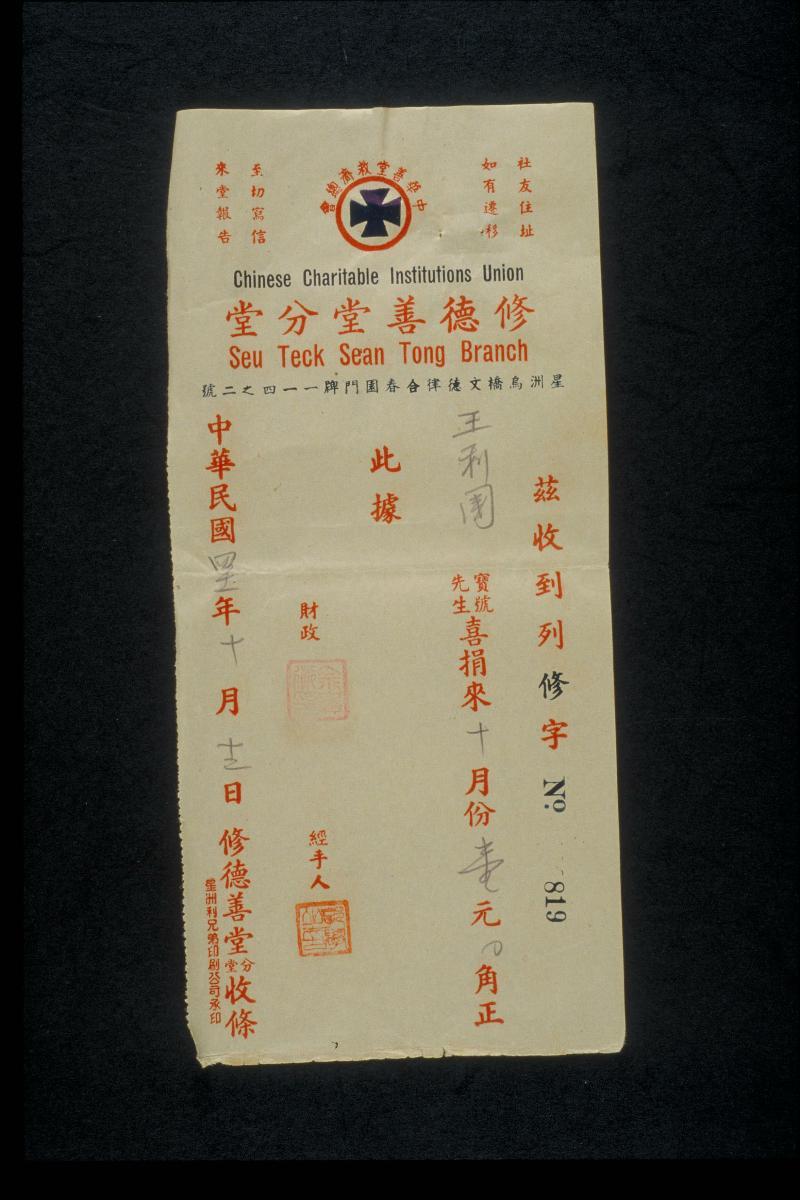 社友住址
如有遷移
至切寫信
來堂報告
中華善堂救濟總會
Chinese Charitable Institutions Union
修德善堂分堂
Seu Teck Sean Tong Branch
星洲烏橋文德律合春園門牌一一四之二號
茲收到列修字 No. 819
王利園 寶號先生喜捐來十月份壹元0角正
此據
財政
經手人
中華民國 年十月 日修德善堂分堂收條
星洲利兄弟印刷公司承印